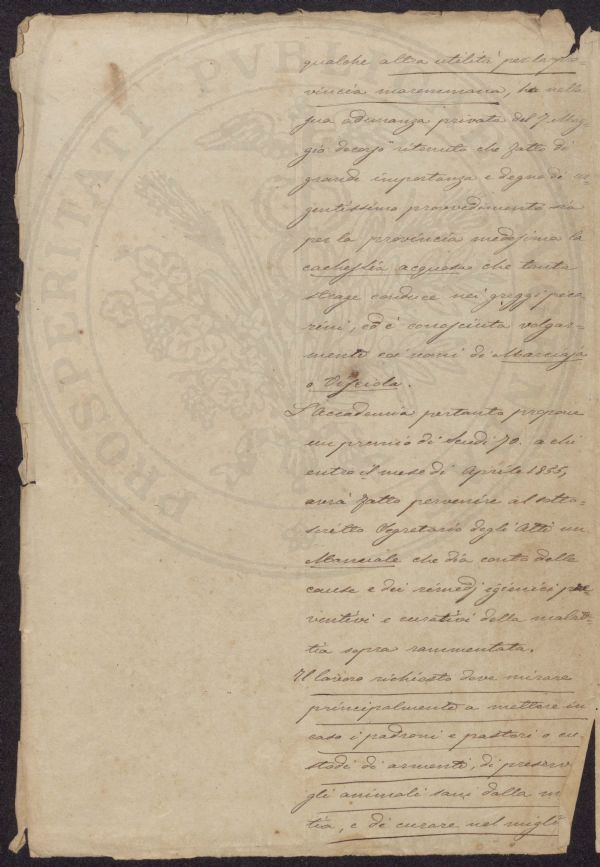 qualche altra utilità per la pro-
vincia maremmana, ha nella
sua adunanza privata del 7. Mag-
gio decorso ritenuto che fatto di
grande importanza e degno di ur-
gentissimo provvedimento sia
per la provincia medesima la
cachessia acquosa che tanta
strage conduce nei greggi peco
rini, ed è conosciuta volgar-
mente coi nomi di Marciaja
o Visciola.
L'Accademia pertanto propone
un premio di Scudi 70. a chi
entro il mese di Aprile 1855,
avrà fatto pervenire al sotto-
scritto Segretario degli Atti un
Manuale che dia conto delle
cause e dei rimedj igienici pre
ventivi e curativi della malat-
tia sopra rammentata.
Il lavoro richiesto deve mirare
principalmente a mettere in
caso i padroni e pastori o cu-
stodi di armenti, di preserv
gli animali sani dalla m
tia, e di curare nel migli
PROSPERITATI PVBLI